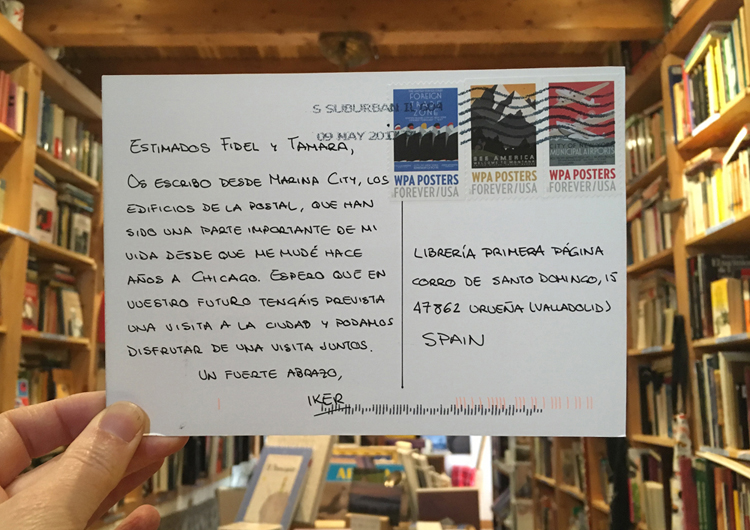 S SUBURBAN IL 604
09 MAY 2017
FOREIGN
TRADE
ZONE
SEE AMERICA
WELCOME TO MONTANA
CITY OF NEW YORK
MUNICIPAL AIRPORTS
WPA POSTERS
FOREVER/USA
WPA POSTERS
FOREVER/USA
WPA POSTERS
FOREVER/USA
ESTIMADOS FIDEL Y TAMARA,
OS ESCRIBO DESDE MARINA CITY, LOS
EDIFICIOS DE LA POSTAL, QUE HAN
SIDO UNA PARTE IMPORTANTE DE MI
VIDA DESDE QUE ME MUDÉ HACE
AÑOS A CHICAGO. ESPERO QUE EN
VUESTRO FUTURO TENGÁIS PREVISTA
UNA VISITA A LA CIUDAD Y PODAMOS
DISFRUTAR DE UNA VISITA JUNTOS.
UN FUERTE ABRAZO,
IKER
LIBRERÍA PRIMERA PÁGINA
CORRO DE SANTO DOMINGO, 15
47862 URUEÑA (VALLADOLID)
SPAIN